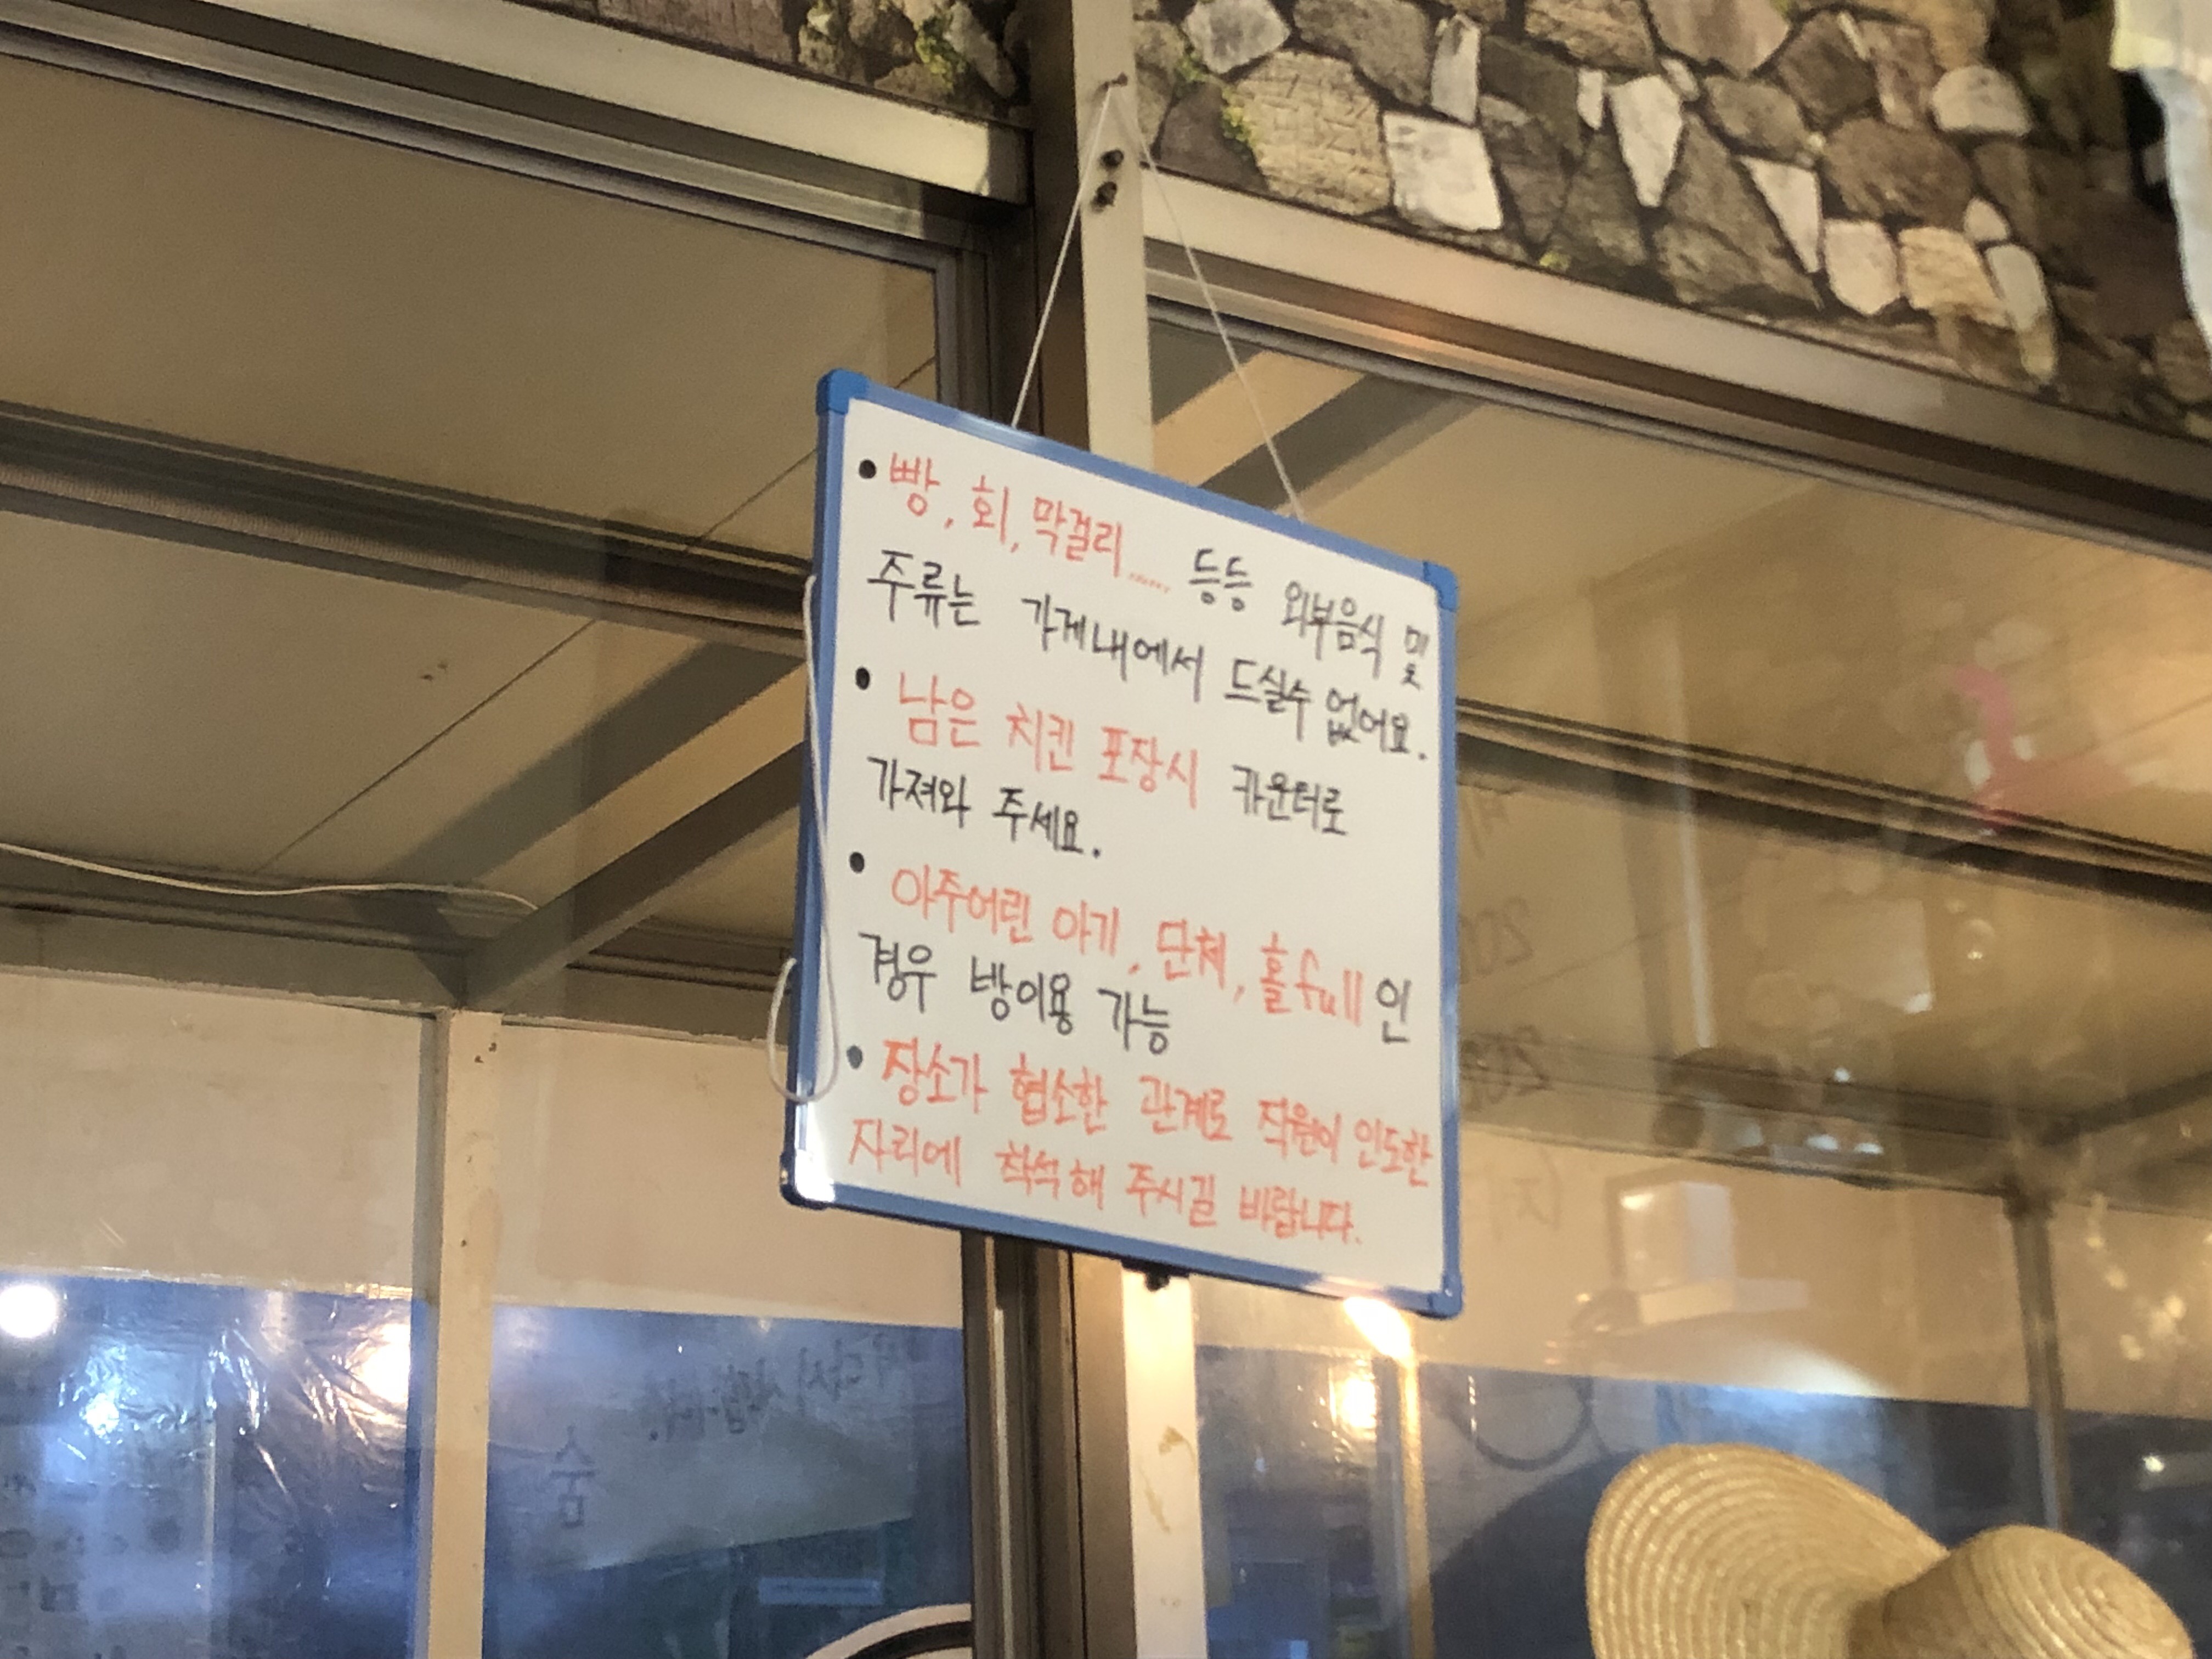 • 빵, 회, 막걸리...... 등등 외부음식 및
주류는 가게내에서 드실수 없어요.
• 남은 치킨 포장시 카운터로
가져와 주세요.
• 아주어린 아기, 단체, 홀full인
경우 방이용 가능
• 장소가 협소한 관계로 직원이 인도한
자리에 착석해 주시길 바랍니다.